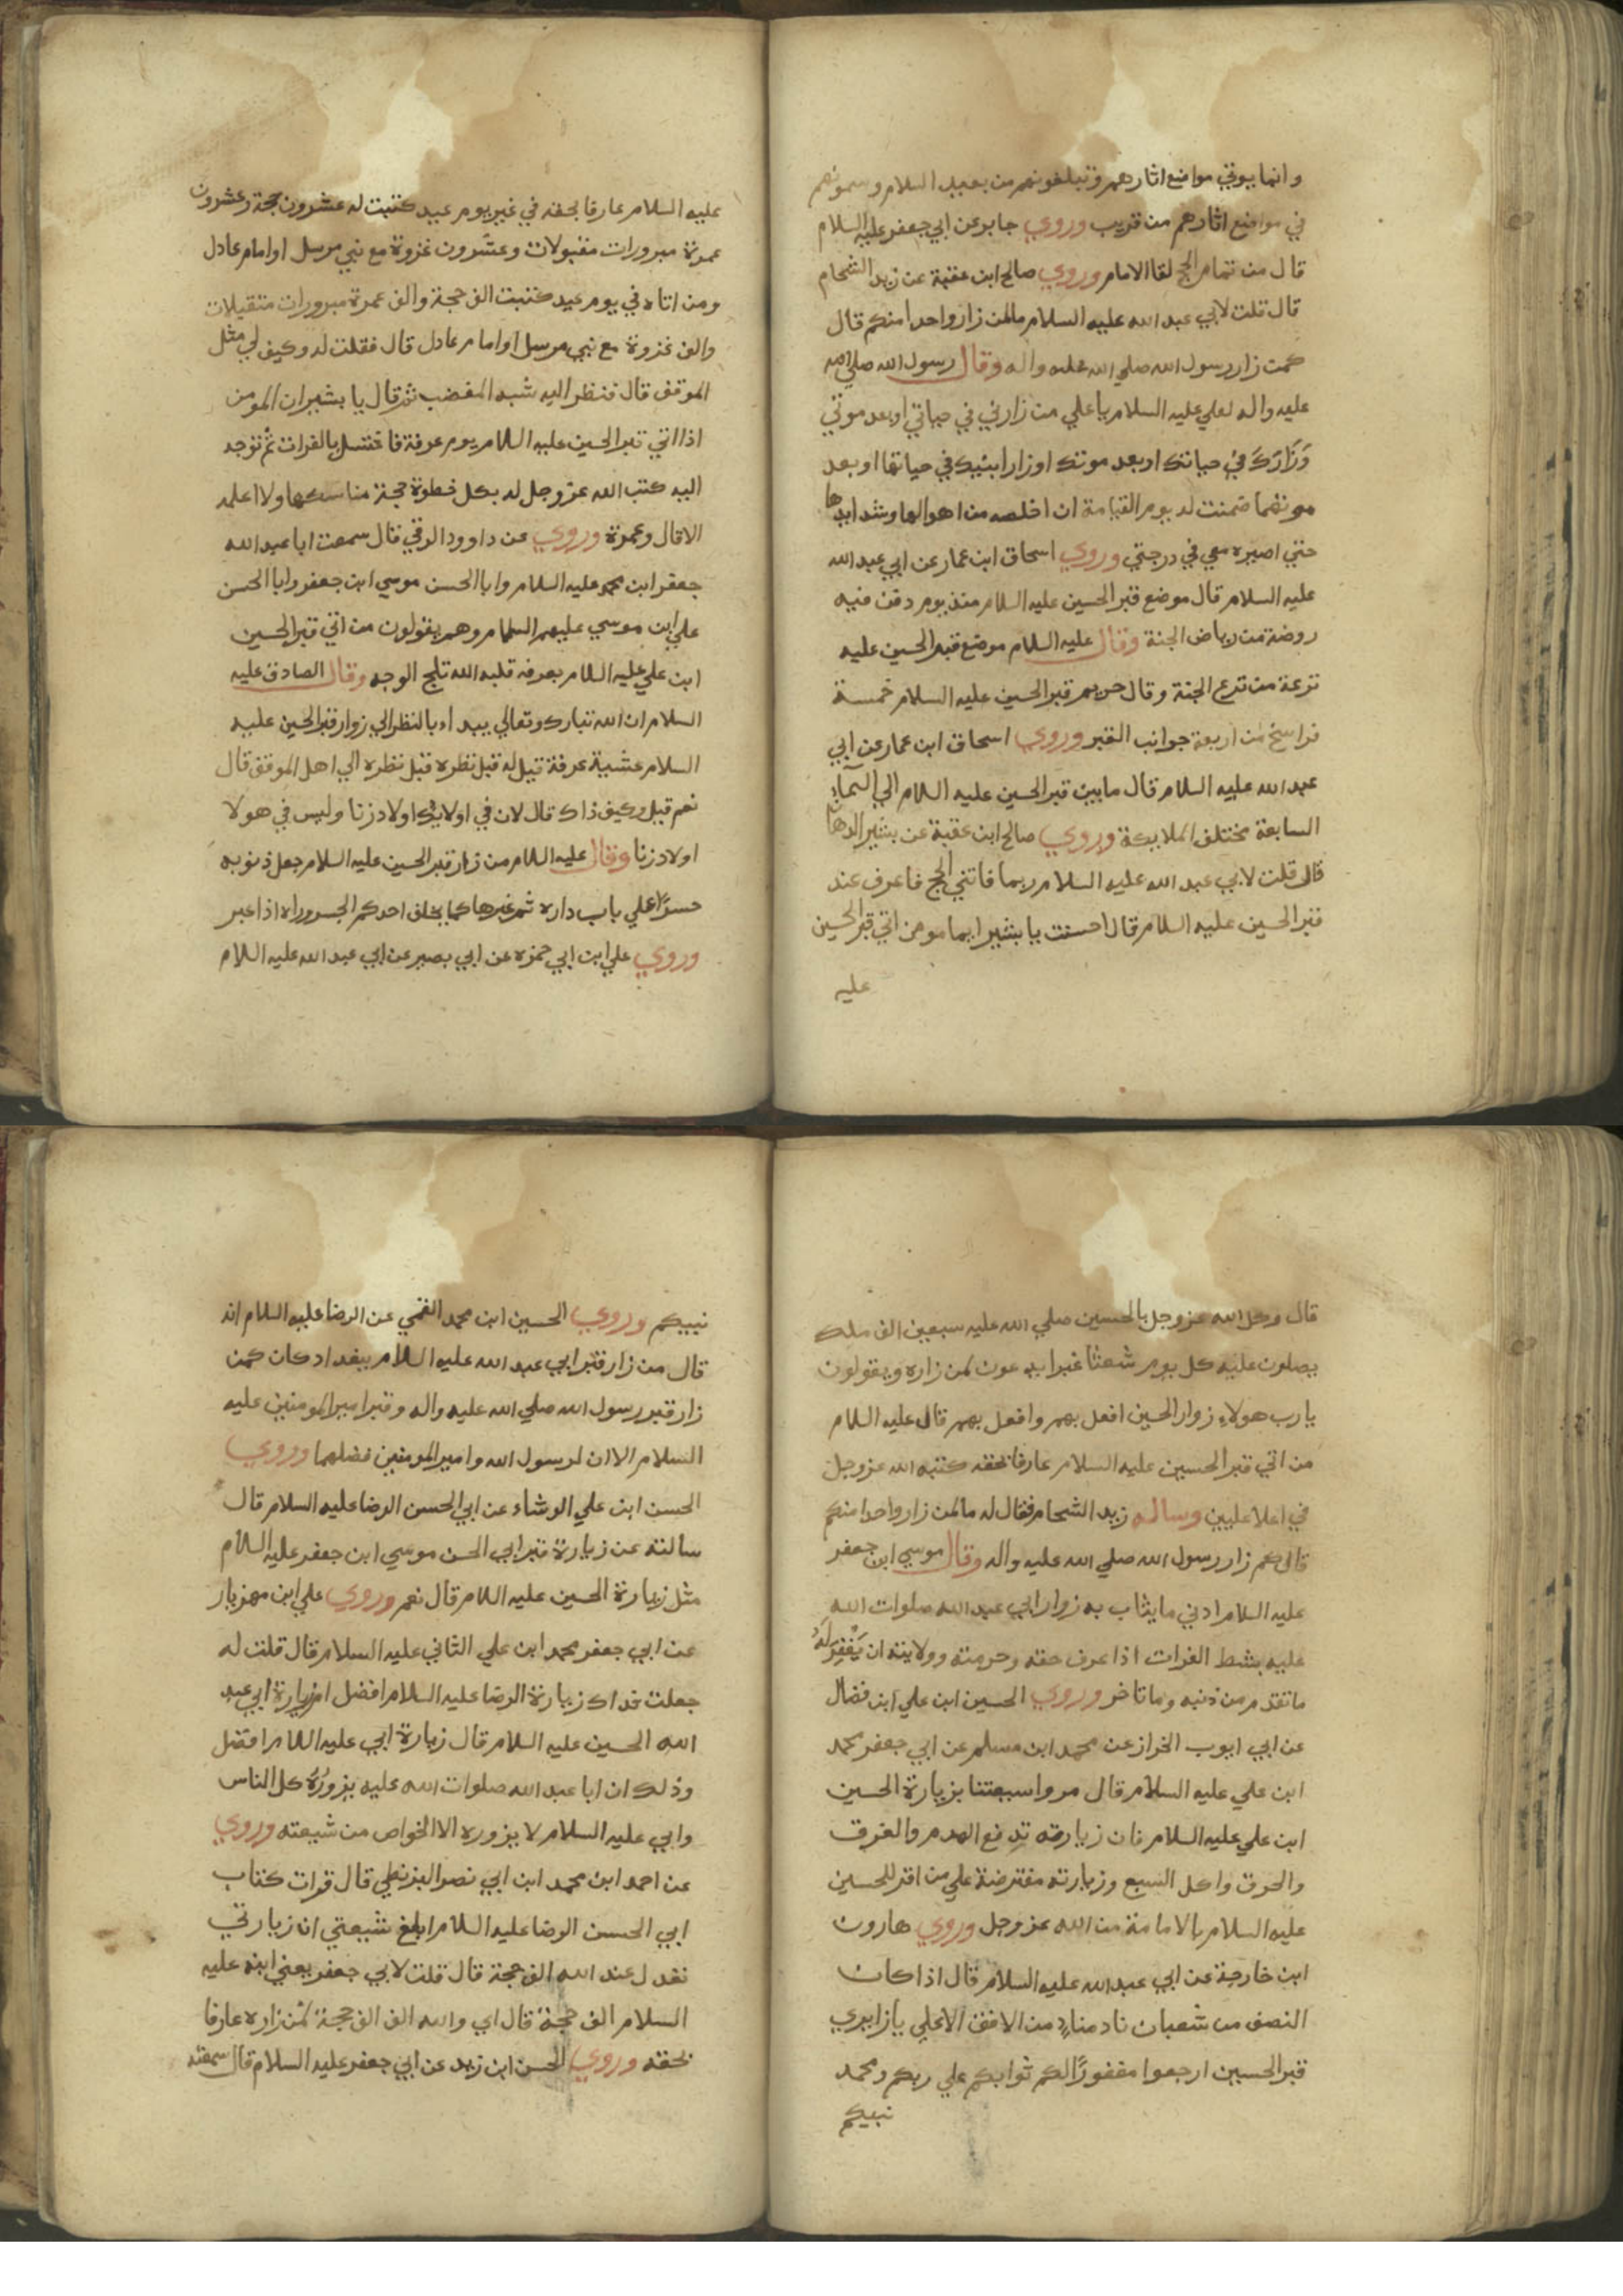 وانما يوتي مواضع اثارهم وتبلغونهم من بعيد السلام وسمونهم
في مواضع اثارهم من قريب وروي جابر عن ابي جعفر عليه السلام
قال من تمام الحج لقا الامام وروي صالح ابن عقبة عن زيد الشحام
قال قلت لابي عبد الله عليه السلام مالمن زار واحدا منكم قال
كمن زار رسول الله صلي الله عليه واله وقال رسول الله صلي الله
عليه واله لعلي عليه السلام يا علي من زارني في حياتي او بعد موتي
وَزَارَكَ في حياتك او بعد موتك او زار ابنيك في حياتهما او بعد
موتهما ضمنت له يوم القيامة ان اخلصه من اهوالها وشدايدها
حتي اصيره معي في درجتي وروي اسحاق ابن عمار عن ابي عبد الله
عليه السلام قال موضع قبر الحسين عليه السلام منذ يوم دفن فيه
روضة من رياض الجنة وقال عليه السلام موضع قبر الحسين عليه
ترعة من ترع الجنة وقال حريم قبر الحسين عليه السلام خمسة
فراسخ من اربعة جوانب القبر وروي اسحاق ابن عمار عن ابي
عبد الله عليه السلام قال ما بين قبر الحسين عليه السلام الي السماء
السابعة مختلف الملايكة وروي صالح ابن عقبة عن بشير الدهان
قال قلت لابي عبد الله عليه السلام ربما فاتني الحج فاعرف عند
قبر الحسين عليه السلام قال احسنت يا بشير ايما مومن اتي قبر الحسين
عليه
عليه السلام عارفا بحقه في غير يوم عيد كتبت له عشرون حجة وعشرون
عمرة مبرورات مقبولات وعشرون غزوة مع نبي مرسل او امام عادل
ومن اتاه في يوم عيد كتبت الف حجة والف عمرة مبرورات متقبلات
والف غزوة مع نبي مرسل او امام عادل قال فقلت له وكيف لي مثل
الموقف قال فنظر اليه شبه المغضب ثم قال يا بشير ان المومن
اذا اتي قبر الحسين عليه السلام يوم عرفة فاغتسل بالفرات ثم توجه
اليه كتب الله عز وجل له بكل خطوة حجة مناسكها ولا اعلمه
الا قال وعمرة وروي عن داوود الرقي قال سمعت ابا عبد الله
جعفر ابن محمد عليه السلام وابا الحسن موسي ابن جعفر وابا الحسن
علي ابن موسي عليهم السلام وهم يقولون من اتي قبر الحسين
ابن علي عليه السلام بعرفه قلبه الله ثلج الوجه وقال الصادق عليه
السلام ان الله تبارك وتعالي يبداء بالنظر الي زوار قبر الحسين عليه
السلام عشية عرفة قيل له قبل نظره قبل نظره الي اهل الموقف قال
نعم قيل وكيف ذاك قال لان في اوليك اولاد زنا وليس في هولا
اولاد زنا وقال عليه السلام من زار قبر الحسين عليه السلام جعل ذنوبه
جسرًا علي باب داره ثم عبرها كما يخلف احدكم الجسر وراه اذا عبر
وروي علي ابن ابي حمزه عن ابي بصير عن ابي عبد الله عليه السلام
قال وكل الله عز وجل بالحسين صلي الله عليه سبعين الف ملك
يصلون عليه كل يوم شعثا غبرا يدعون لمن زاره ويقولون
يا رب هولاء زوار الحسين افعل بهم وافعل بهم قال عليه السلام
من اتي قبر الحسين عليه السلام عارفا بحقه كتبه الله عز وجل
في اعلا عليين وساله زيد الشحام فقال له ما لمن زار واحدا منكم
قال كمن زار رسول الله صلي الله عليه واله وقال موسي ابن جعفر
عليه السلام ادني ما يثاب به زوار ابي عبد الله صلوات الله
عليه بشط الفرات اذا عرف حقه وحرمته وولايته ان يَغْفِرَ لَهُ
ما تقدم من ذنبه وما تاخر وروي الحسين ابن علي ابن فضال
عن ابي ايوب الخراز عن محمد ابن مسلم عن ابي جعفر محمد
ابن علي عليه السلام قال مروا شيعتنا بزيارة الحسين
ابن علي عليه السلام فان زيارته تدفع الهدم والغرق
والحرق واكل السبع وزيارته مفترضة علي من اقر للحسين
عليه السلام بالامامة من الله عز وجل وروي هارون
ابن خارجة عن ابي عبد الله عليه السلام قال اذا كان
النصف من شعبان ناد منادٍ من الافق الاعلي يا زايري
قبر الحسين ارجعوا مغفورًا لكم ثوابكم علي ربكم ومحمد
نبيكم
نبيكم وروي الحسين ابن محمد القمي عن الرضا عليه السلام انه
قال من زار قبر ابي عبد الله عليه السلام ببغداد كان كمن
زار قبر رسول الله صلي الله عليه واله وقبر امير المومنين عليه
السلام الا ان لرسول الله وامير المومنين فضلهما وروي
الحسن ابن علي الوشاء عن ابي الحسن الرضا عليه السلام قال
سالته عن زيارة قبر ابي الحسن موسي ابن جعفر عليه السلام
مثل زيارة الحسين عليه السلام قال نعم وروي علي ابن مهزيار
عن ابي جعفر محمد ابن علي الثاني عليه السلام قال قلت له
جعلت فداك زيارة الرضا عليه السلام افضل ام زيارة ابي عبد
الله الحسين عليه السلام قال زيارة ابي عليه السلام افضل
وذلك ان ابا عبد الله صلوات الله عليه يزورُهُ كل الناس
وابي عليه السلام لا يزوره الا الخواص من شيعته وروي
عن احمد ابن محمد ابن ابي نصر البزنطي قال قرات كتاب
ابي الحسن الرضا عليه السلام ابلغ شيعتي ان زيارتي
تعدل عند الله الف حجة قال قلت لابي جعفر يعني ابنه عليه
السلام الف حجة قال اي والله الف الف حجة لمن زاره عارفا
بحقه وروي الحسن ابن زيد عن ابي جعفر عليه السلام قال سمعته